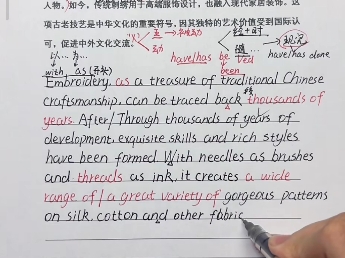 人物。如今，传统刺绣用于高端服饰设计，也融入现代家居装饰。这
项古老技艺是中华文化的重要符号，因其独特的艺术价值受到国际认
可，促进中外文化交流。
以…为…
with as
have/has be
Ved
been
have/has done
Embroidery, as a treasure of traditional Chinese
craftsmanship, can be traced back thousands of
years. After/Through thousands of years of
development, exquisite skills and rich styles
have been formed. With needles as brushes
and threads as ink, it creates a wide
range of/a great variety of gorgeous patterns
on silk, cotton and other fabric